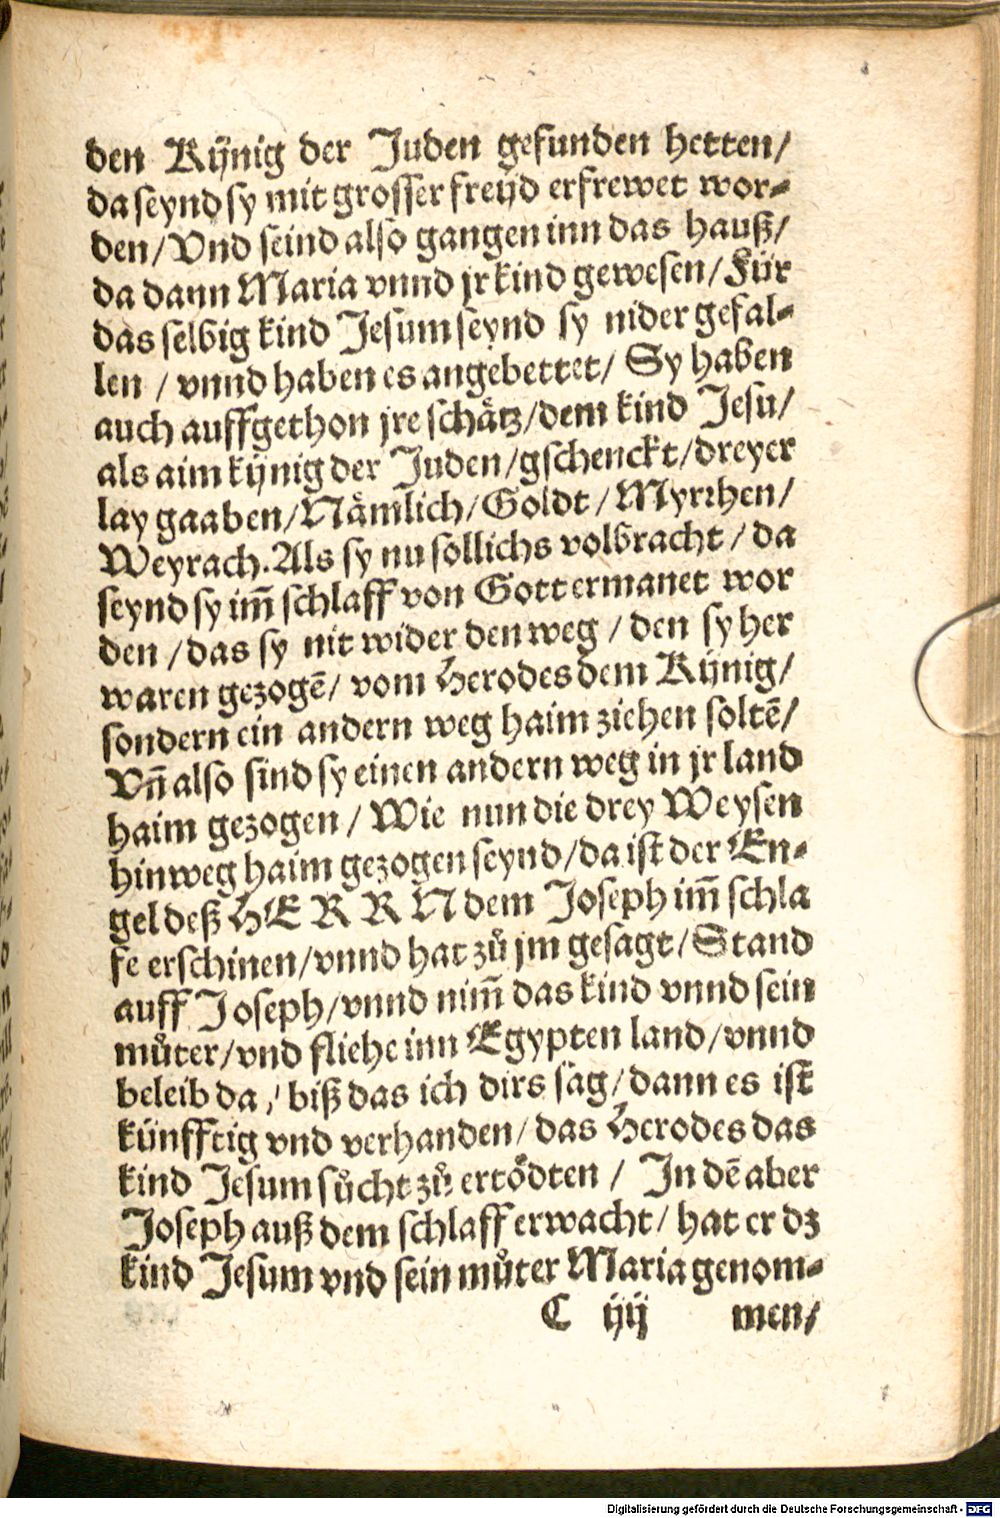 den Kÿnig der Juden gefunden hetten/
da seynd sy mit grosser freÿd erfrewet wor-
den/ Vnd seind also gangen inn das hauß/
da dann Maria vnnd jr kind gewesen/ Für
das selbig kind Jesum seynd sy nider gefal-
len / vnnd haben es angebettet/ Sy haben
auch auffgethon jre schätz/dem kind Jesu/
als aim kÿnig der Juden/gschenckt/dreyer
lay gaaben/Nämlich/Goldt/Myrrhen/
Weyrach. Als sy nu sollichs volbracht/ da
seynd sy im̃ schlaff von Gott ermanet wor
den /das sy nit wider den weg / den sy her
waren gezogẽ/ vom Herodes dem Kÿnig/
sondern ein andern weg haim ziehen soltẽ/
Vñ also sind sy einen andern weg in jr land
haim gezogen/ Wie nun die drey Weysen
hinweg haim gezogen seynd/da ist der En-
gel deß HERRN dem Joseph im̃ schla
fe erschinen/vnnd hat zů jm gesagt/ Stand
auff Joseph/vnnd nim̃ das kind vnnd sein
můter/vnd fliehe inn Egypten land/vnnd
beleib da / biß das ich dirs sag/dann es ist
künfftig vnd verhanden/ das Herodes das
kind Jesum sůcht zů ertödten / In dẽ aber
Joseph auß dem schlaff erwacht/ hat er dz
kind Jesum vnd sein můter Maria genom-
C ÿÿ men/
Digitalisierung gefördert durch die Deutsche Forschungsgemeinschaft - DFG